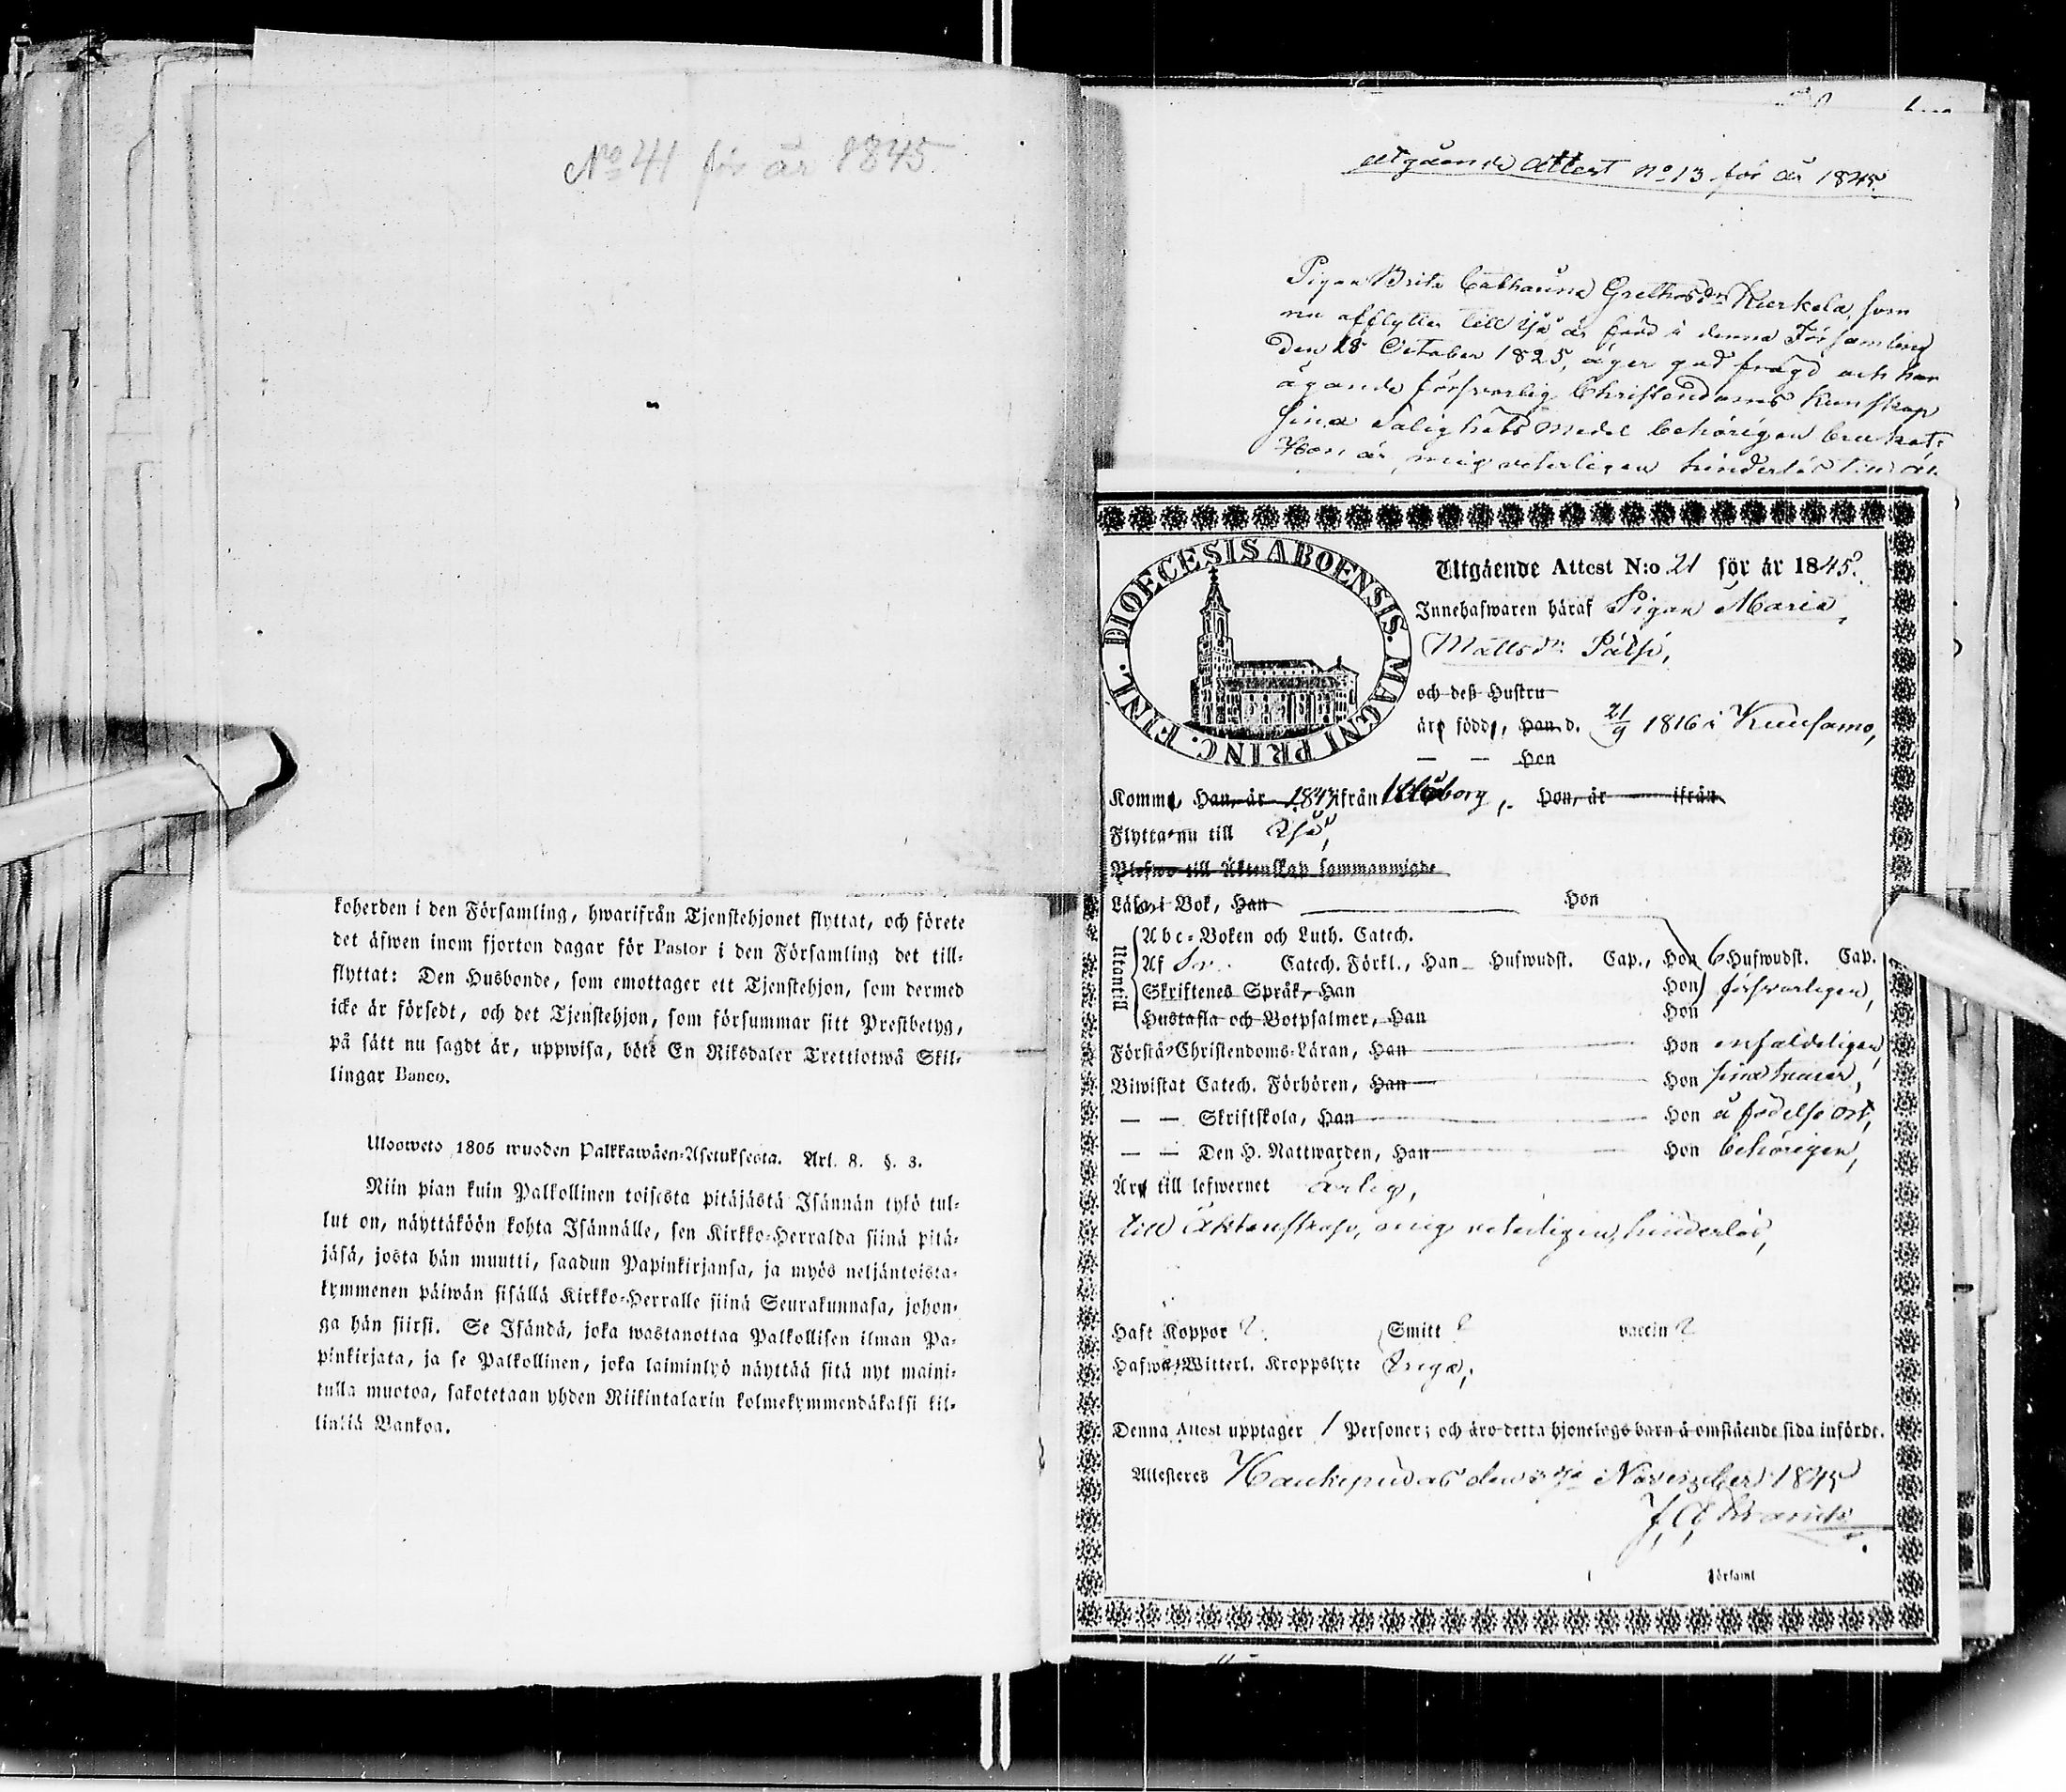 No 41 för år 1845
koherden i den Församling, hwarifrån Tjenstehjonet flyttat, och förete
det äfwen inom fjorton dagar för Pastor i den Församling det till-
flyttat: Den Husbonde, som emottager ett Tjenstehjon, som dermed
icke är försedt, och det Tjenstehjon, som försummar sitt Prestbetyg,
på sätt nu sagdt är, uppwisa, böte En Riksdaler Trettiotwå Skil-
lingar Banco.
Ulosweto 1805 wuoden Palkkawäen-Asetuksesta. Art. 8. §. 3.
Niin pian kuin Palkollinen toisesta pitäjästä Isännän tykö tul-
lut on, näyttäköön kohta Isännälle, sen Kirkko-Herralda siinä pitä-
jäsä, josta hän muutti, saadun Papinkirjansa, ja myös neljäntoista-
kymmenen päiwän sisällä Kirkko-Herralle siinä Seurakunnasa, johon-
ga hän siirsi. Se Isändä, joka wastanottaa Palkollisen ilman Pa-
pinkirjata, ja se Palkollinen, joka laiminlyö näyttää sitä nyt maini-
tulla muotoa, sakotetaan yhden Riikintalarin kolmekymmendäkaksi kil-
linkiä Bankoa.
Utgående Attest No 13 för år 1845.
Pigan Brita Catharina Grethasdr Kurkela, som
nu afflyttar till Ijå, är född i denna Församling
den 28 October 1825, äger god frägd och har
ägande försvarlig Christendoms kunskap
sina Salighets medel behörigen brukat.
Hon är, mig veterligen hinderlös till äk
DIOECESIS ABOENSIS. MAGNI PRINC. FINL.
Utgående Attest N:o 21 för år 1845.
Innehafwaren häraf Pigan Maria
Mattsdr Pätsi,
och deß Hustru
äro födde, Han d. 21/9 1816 i Kuusamo,
— — Hon
Komme, Han, år 1843 ifrån Uleåborg, Hon, år ifrån
Flytta nu till Ijå,
Blefwo till Äktenskap sammanwigde
Läsa i Bok, Han Hon
Utantill
Abc-Boken och Luth. Catech.
Af Sv. Catech. Förkl., Han Hufwudst. Cap., Hon 6 Hufwudst. Cap.
Skriftenes Språk, Han Hon försvarligen,
Hustafla och Botpsalmer, Han Hon
Förstå Christendoms-Läran, Han Hon enfaldeligen,
Biwistat Catech. Förhören, Han Hon
— — Skriftskola, Han Hon å födelse ort,
— — Den H. Nattwarden, Han Hon behörigen,
Äro till lefwernet ärlig,
till Äktenskap, mig veterligen, hinderlös,
Haft Koppor ? Smitt ? vaccin ?
Hafwa Witterl. Kroppslyte Inga,
Denna Attest upptager 1 Personer; och äro detta hjonelags barn å omstående sida införde.
Attesteras Haukipudas den November 1845
församl